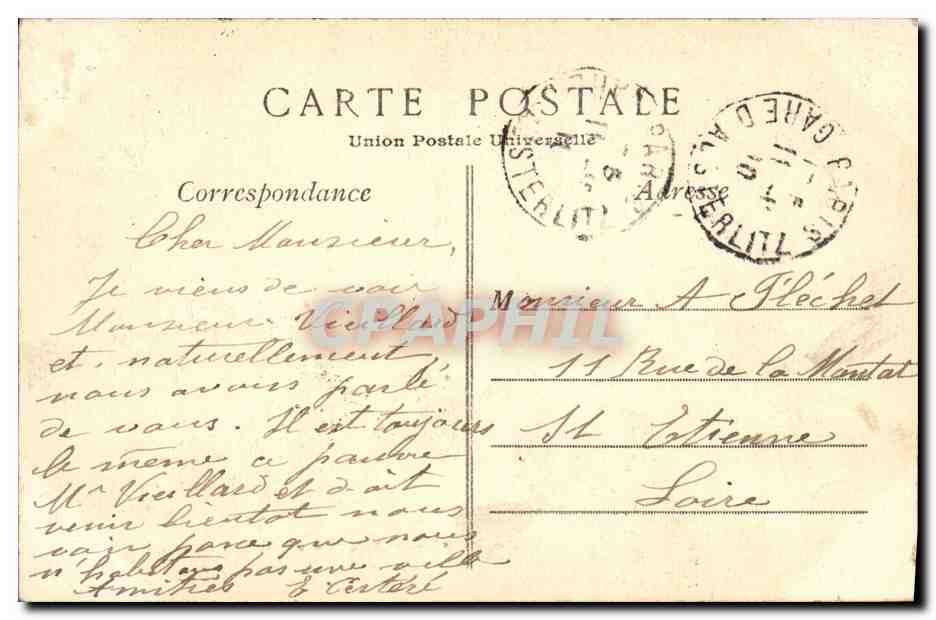 CARTE POSTALE
Union Postale Universelle
Correspondance
Adresse
PARIS GARE D'AUSTERLITZ
Cher Monsieur,
Je viens de voir
Monsieur Vieillard
et, naturellement,
nous avons parlé
de vous. Il est toujours
le même ce pauvre
Mr Vieillard et doit
venir bientot nous
voir parce que nous
n'habitons pas une ville
Amitiés E
Monsieur A Fléchet
11 Rue de la Montat
St Etienne
Loire
CPAPHIL